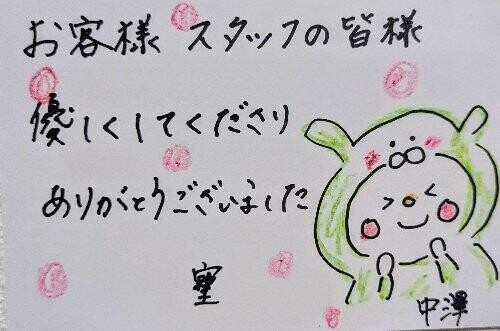 お客様 スタッフの皆様
優しくしてくださり
ありがとうございました
中澤